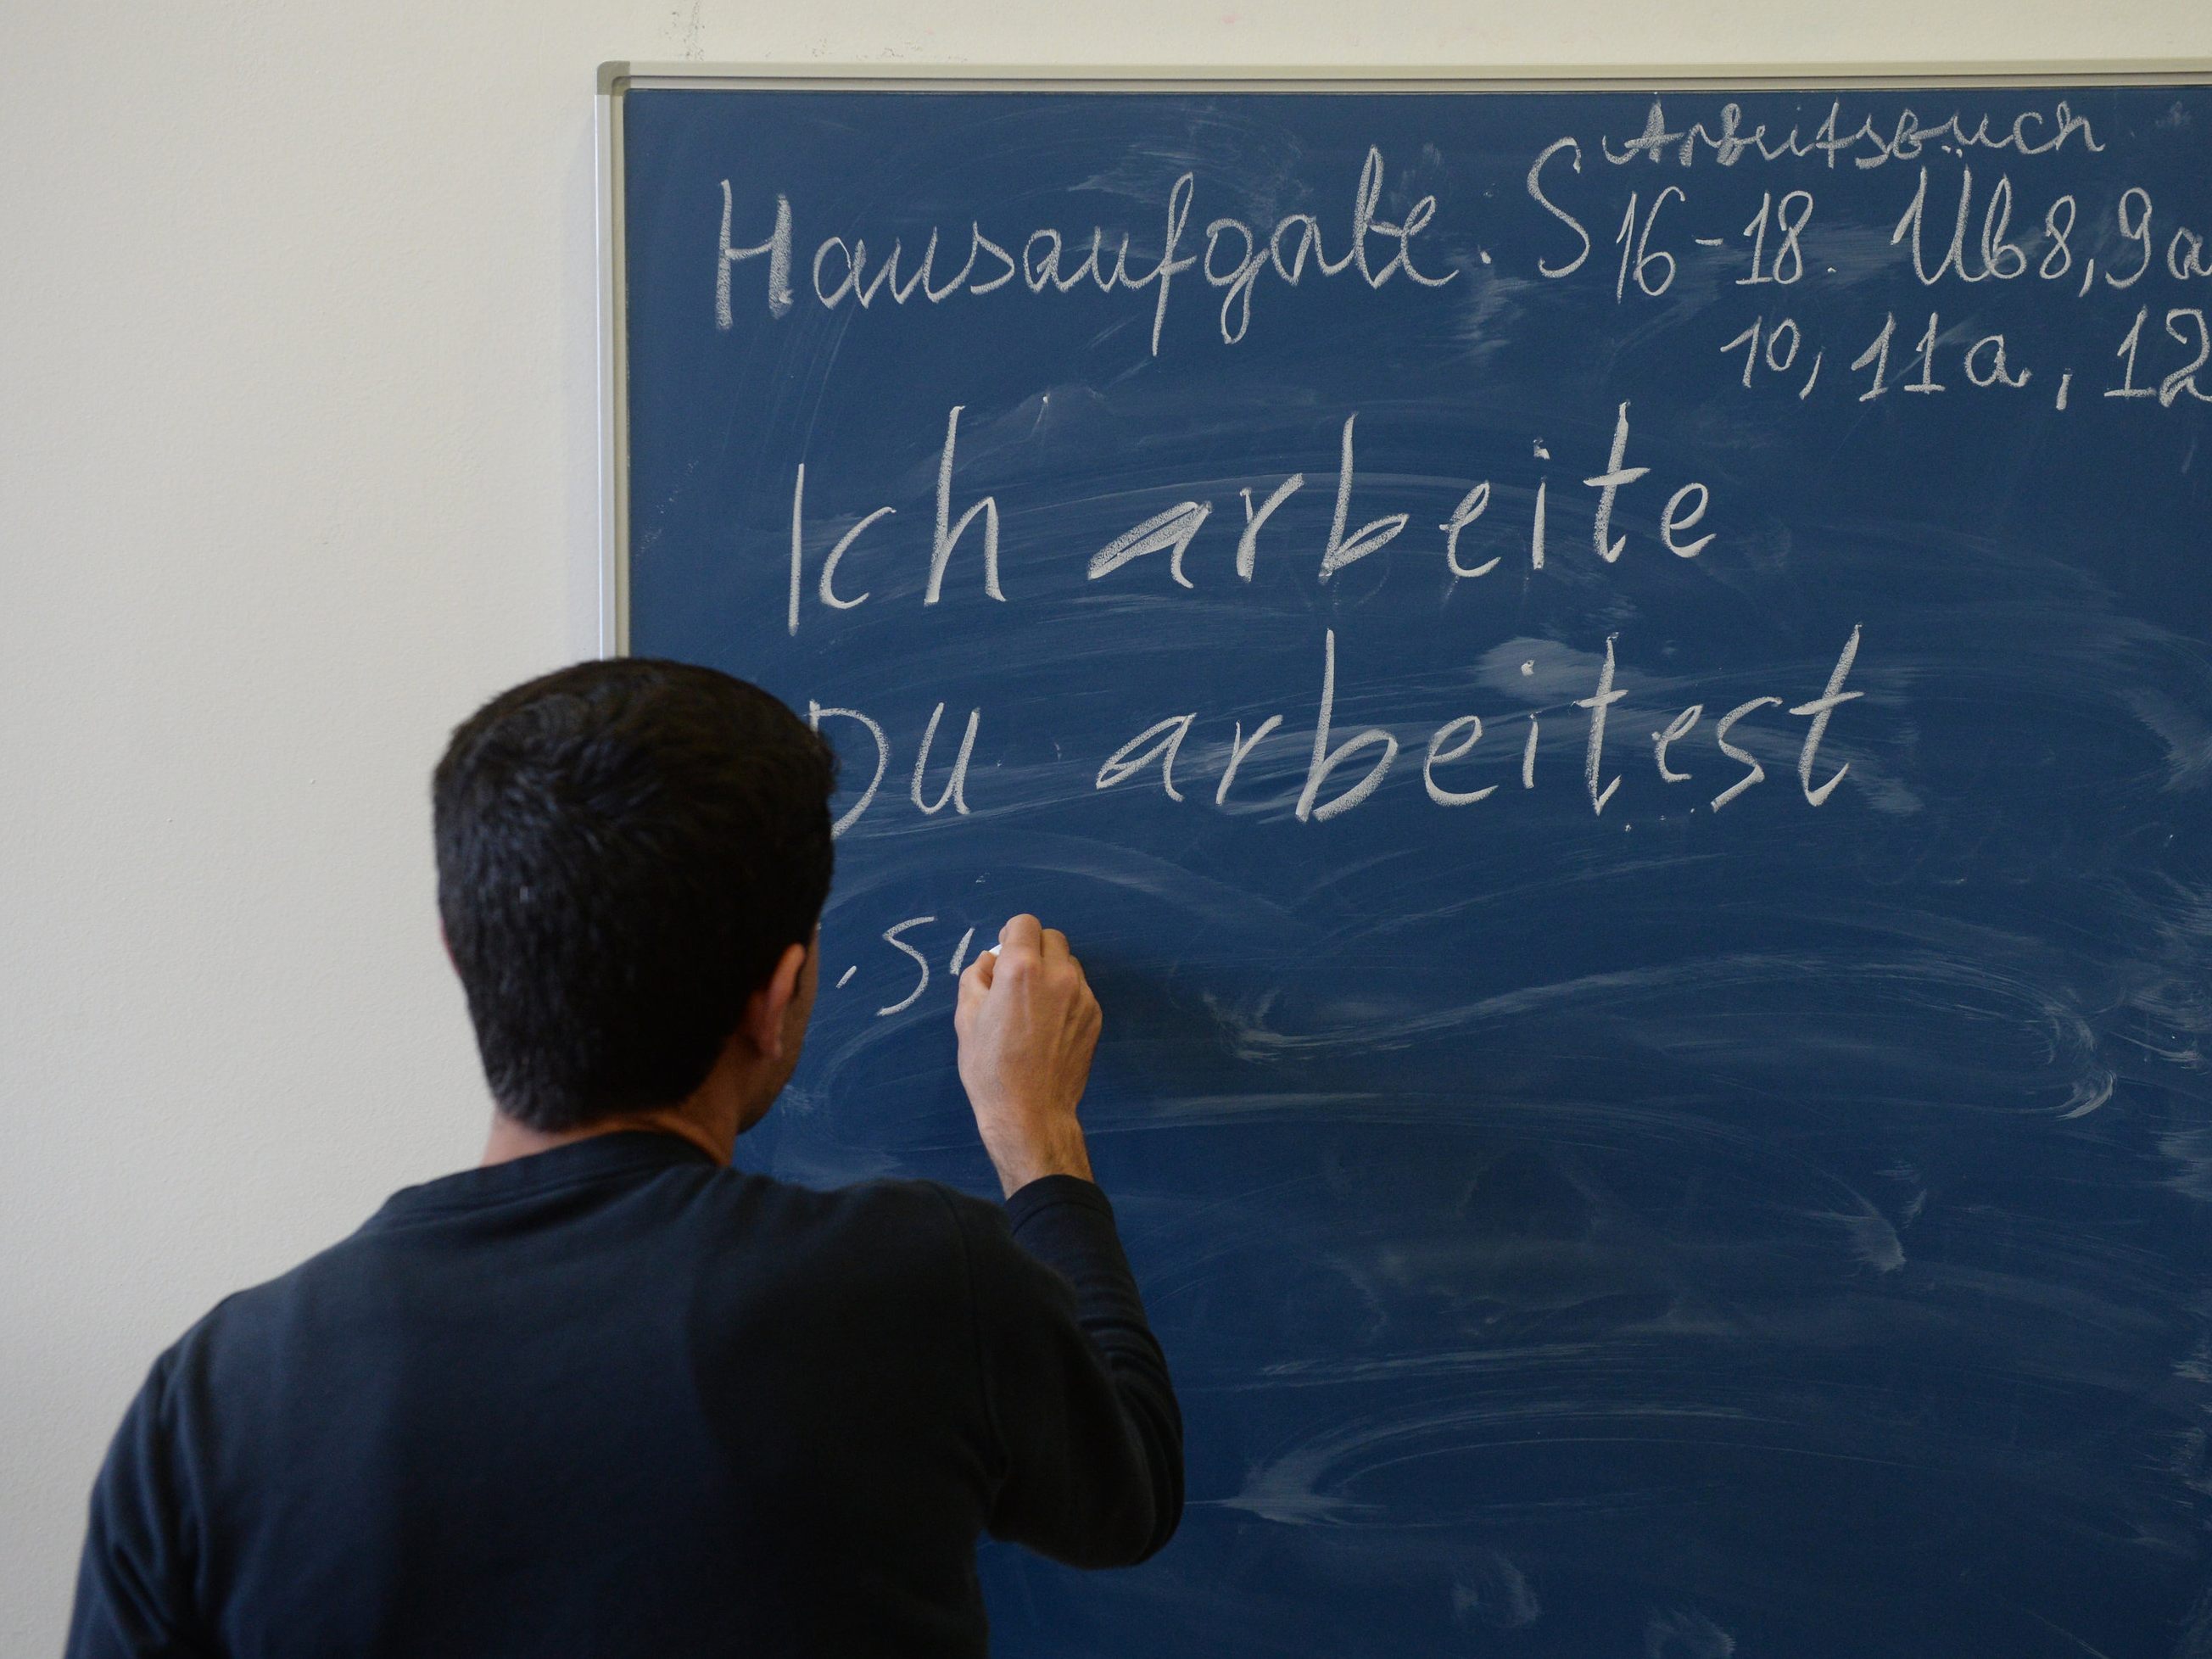 Arbeitsbuch
Hausaufgabe. S 16-18. Üb 8, 9a
10, 11a, 12
Ich arbeite
Du arbeitest